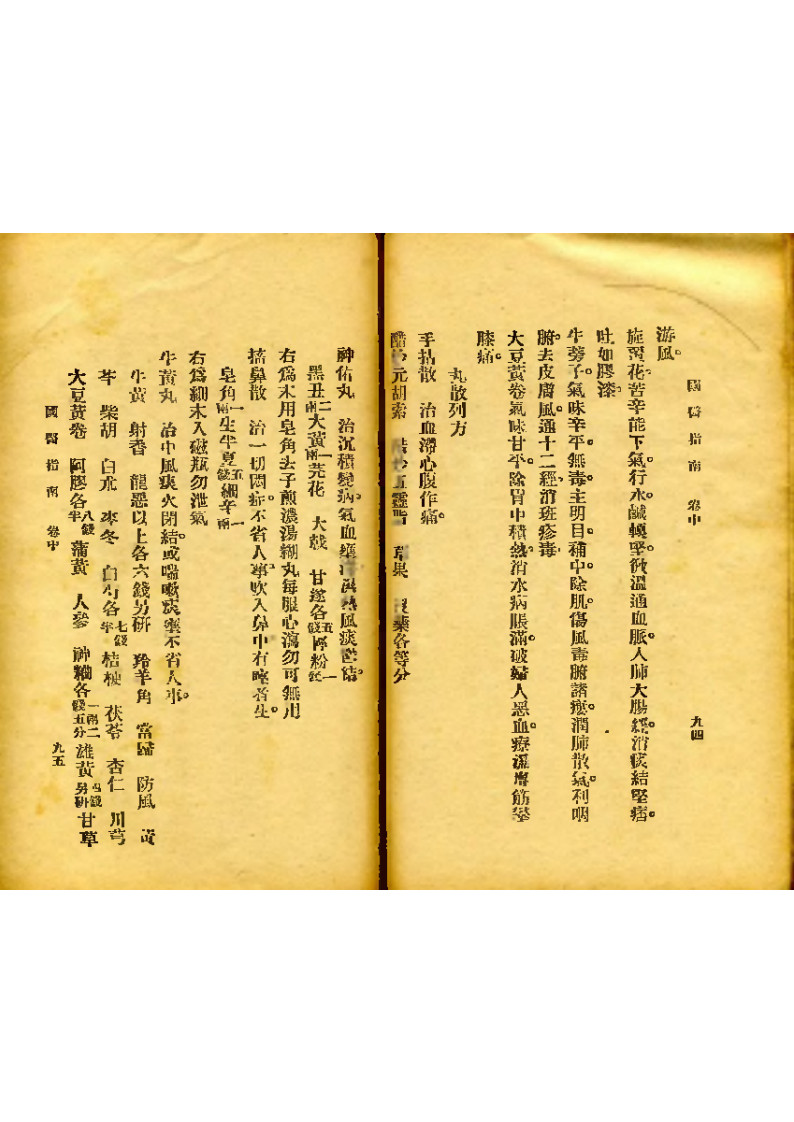 國醫指南 卷中 九四
游風。
旋覆花苦辛能下氣。行水。鹹輭堅。微溫通血脈。入肺大腸經。消痰結堅痞。
吐如膠漆。
牛蒡子氣味辛平。無毒。主明目。補中。除肌。傷風毒腑諸瘻。潤肺散氣。利咽
腑。去皮膚風。通十二經。消班疹毒。
大豆黃卷氣味甘平。除胃中積熱。消水病脹滿。破婦人惡血。療濕痹筋攣
膝痛。
丸散列方
手拈散 治血滯心腹作痛。
醋炒元胡索 醋炒五靈脂 草果 沒藥各等分
神佑丸 治沉積變病。氣血壅滯濕熱風痰鬱結。
黑丑二兩大黃一兩芫花 大戟 甘遂各五錢
右為末用皂角去子煎濃湯糊丸每服心瀉勿可無用
搐鼻散 治一切悶症。不省人事。吹入鼻中有嚏者生。
皂角一兩生半夏五錢細辛一兩
右為細末入磁瓶勿泄氣
牛黃丸 治中風痰火閉結。或喘嗽痰壅不省人事。
牛黃 射香 龍惡以上各六錢另研 羚羊角 當歸 防風 黃
芩 柴胡 白朮 麥冬 白芍各七錢半 桔梗 茯苓 杏仁 川芎
大豆黃卷 阿膠各八錢半 蒲黃 人參 神麯各一兩二錢五分 雄黃另研四錢 甘草
國醫指南 卷中 九五